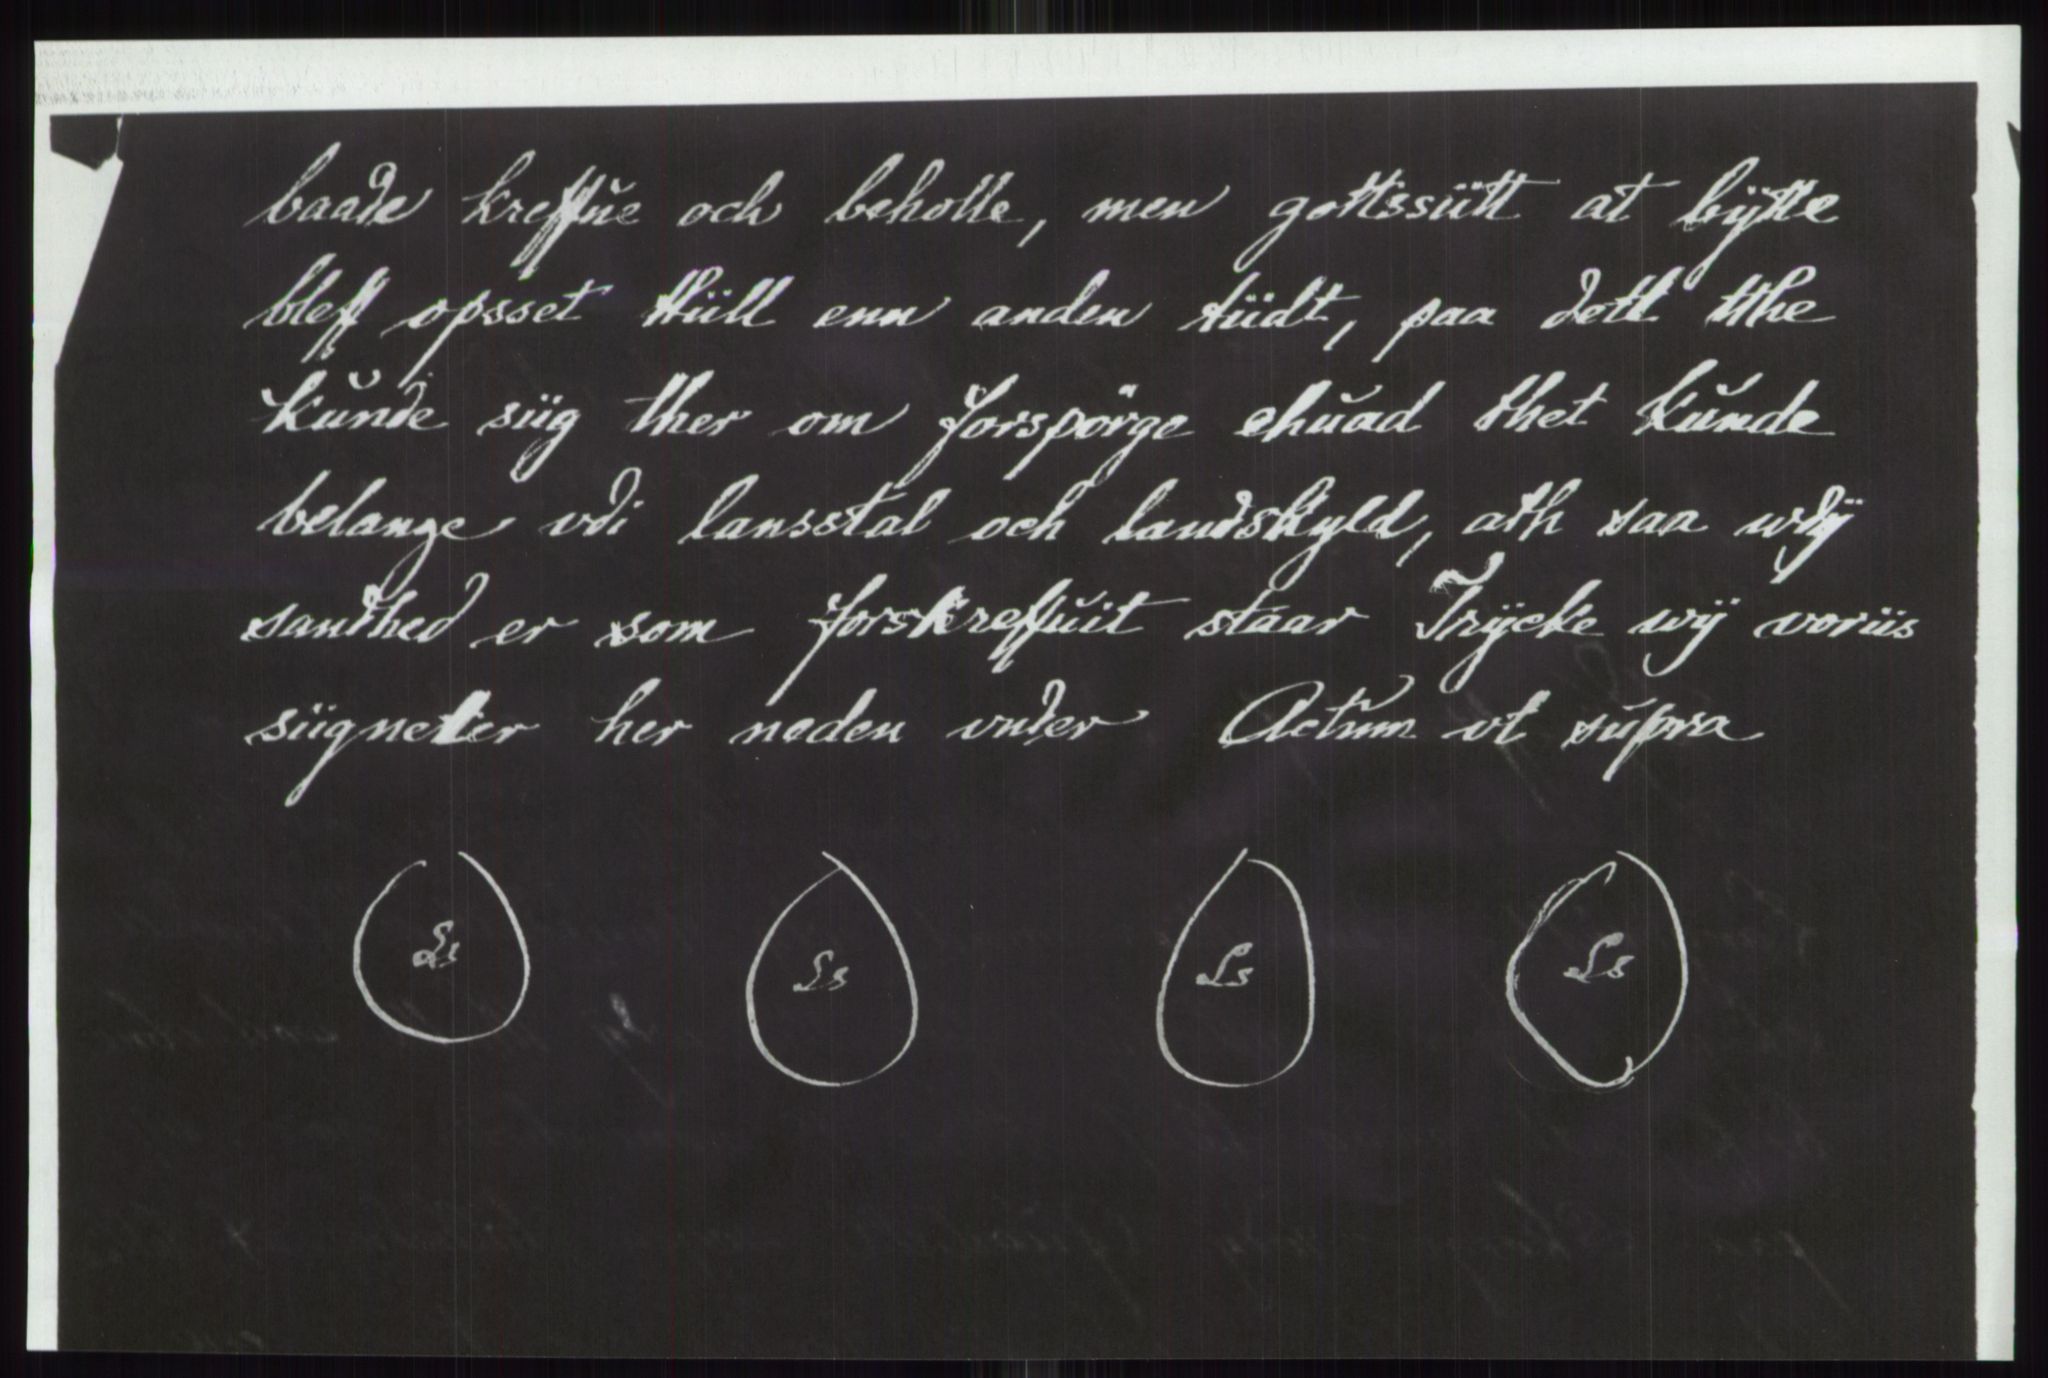 baade kreffue och beholle, men gottssütt at bÿtte
bleff opsset ttüll enn anden tüdt, paa dett tthe
kunde siig ther om forspörge ehuad thet kunde
belange vdi lansstal och landskyld, ath saa wdÿ
sandhed er som forskreffuit staar Trÿcke wÿ voriis
siigneter her neden vnder Actum vt supra
Ls Ls Ls Ls